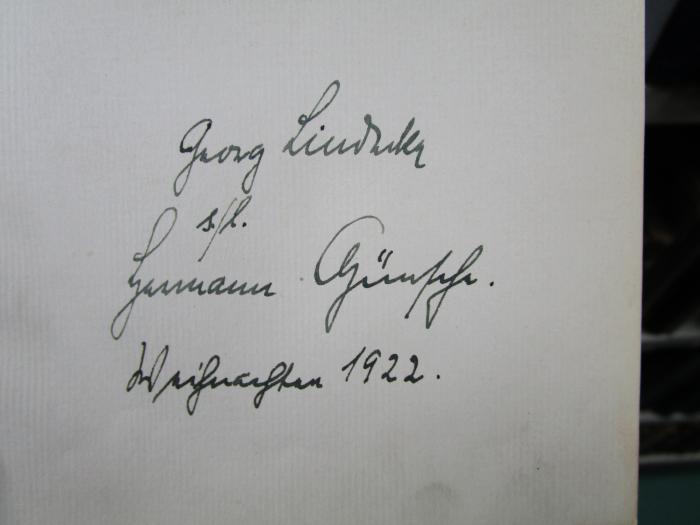 Georg Lindecke
s/l.
Hermann Günsche.
Weihnachten 1922.